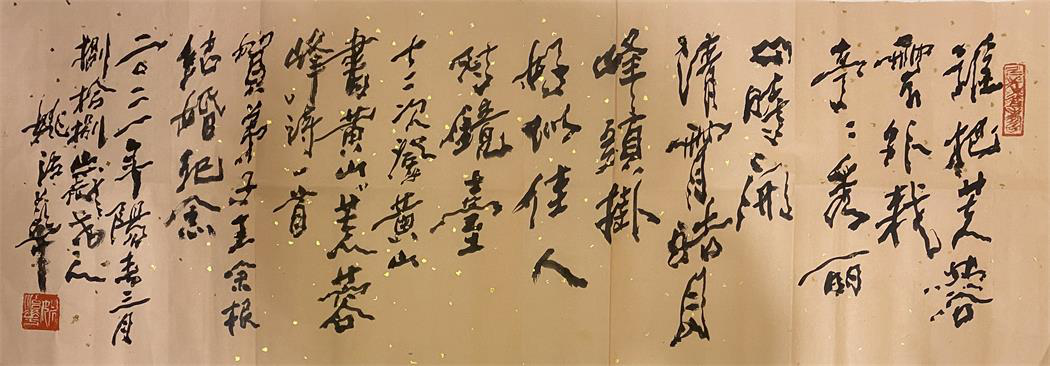 誰把芙蓉
雲外栽
亭亭秀丽
四時開
清宵皓月
峰頭掛
好似佳人
對鏡臺
十二次登黄山
書黄山芙蓉
峰詩一首
賀弟子余根
結婚纪念
二〇二一年陽春三月
捌拾捌歲老人
姚治華